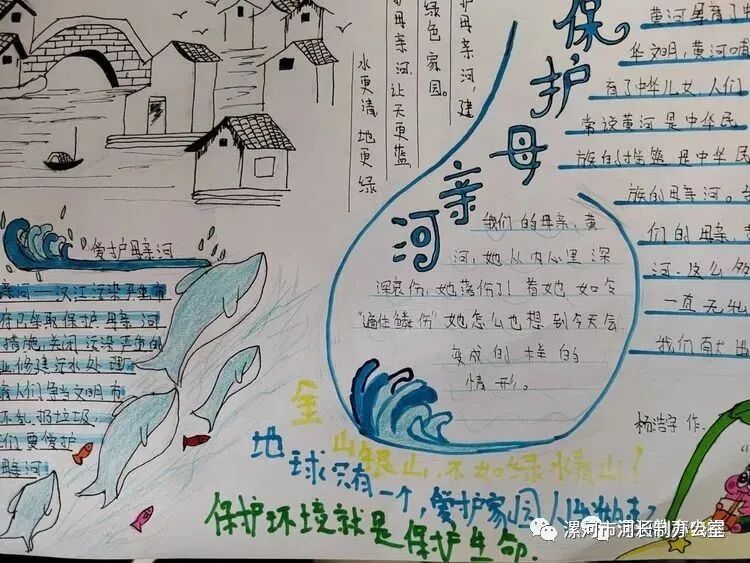 保护母亲河，建
绿色家园。
护母亲河，让天更蓝
水更清，地更绿
保护母亲河
黄河孕育了中
华文明，黄河哺
育了中华儿女，人们
常说黄河是中华民
族的摇篮，是中华民
族的母亲河。
们的母亲，黄
河，这么多
一直无私
我们
杨浩宇 作.
我们的母亲，黄
河，她从内心里深
深哀伤，她落伤了！着她，如今
"遍体鳞伤"她怎么也想到今天会
变成的样的
情形。
爱护母亲河
亲河——汉江污染严重市
府已采取保护母亲河
措施，关闭污染严重的
业，修建污水处理
人们争当文明市
不乱扔垃圾
们要爱护
母亲河
金山银山，不如绿水青山！
地球只有一个，爱护家园人
保护环境就是保护生命.
漯河市河长制办公室